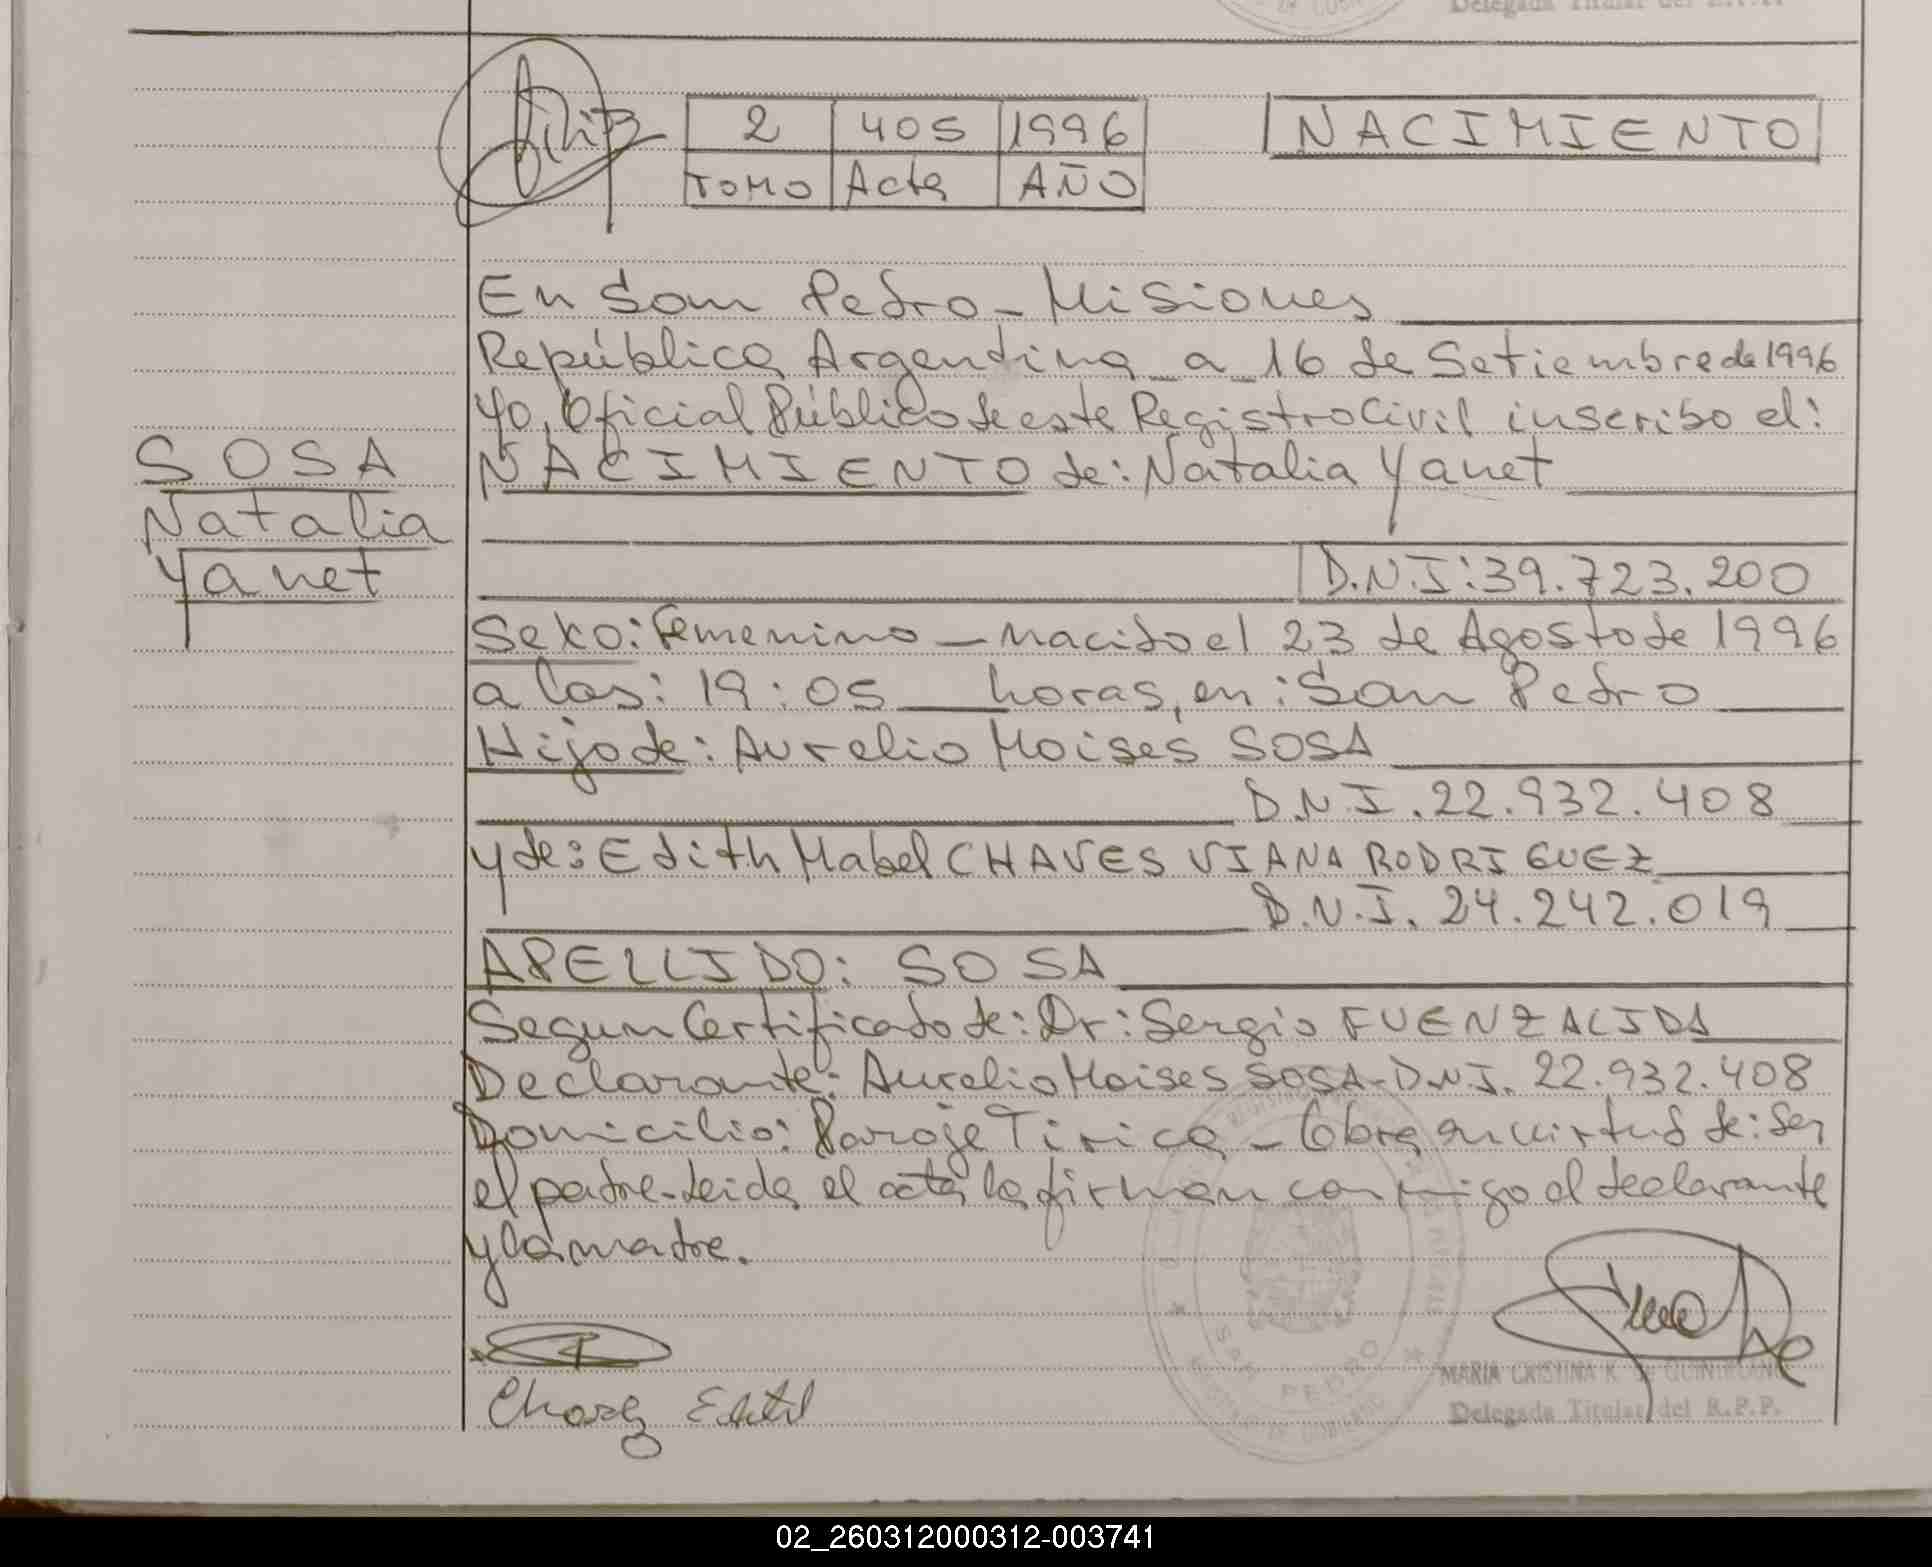 2 405 1996
TOMO Acta AÑO
NACIMIENTO
En San Pedro - Misiones
República Argentina a 16 de Setiembre de 1996
Yo, Oficial Público de este Registro Civil inscribo el:
NACIMIENTO de: Natalia Yanet
SOSA
Natalia
Yanet
D.N.I: 39.723.200
Sexo: Femenino - nacido el 23 de Agosto de 1996
a las: 19:05 horas, en: San Pedro
Hijo de: Aurelio Moises SOSA
D.N.I. 22.932.408
y de: Edith Mabel CHAVES VIANA RODRIGUEZ
D.N.I. 24.242.019
APELLIDO: SOSA
Segun Certificado de: Dr: Sergio FUENZALIDA
Declarante: Aurelio Moises SOSA - D.N.I. 22.932.408
Domicilio: Paraje Tirica - Obra en virtud de: ser
el padre - Leida el acta la firman conmigo el declarante
y la madre.
SAN PEDRO
MARIA CRISTINA K. de
Delegada Titular del R.P.P.
02_260312000312-003741